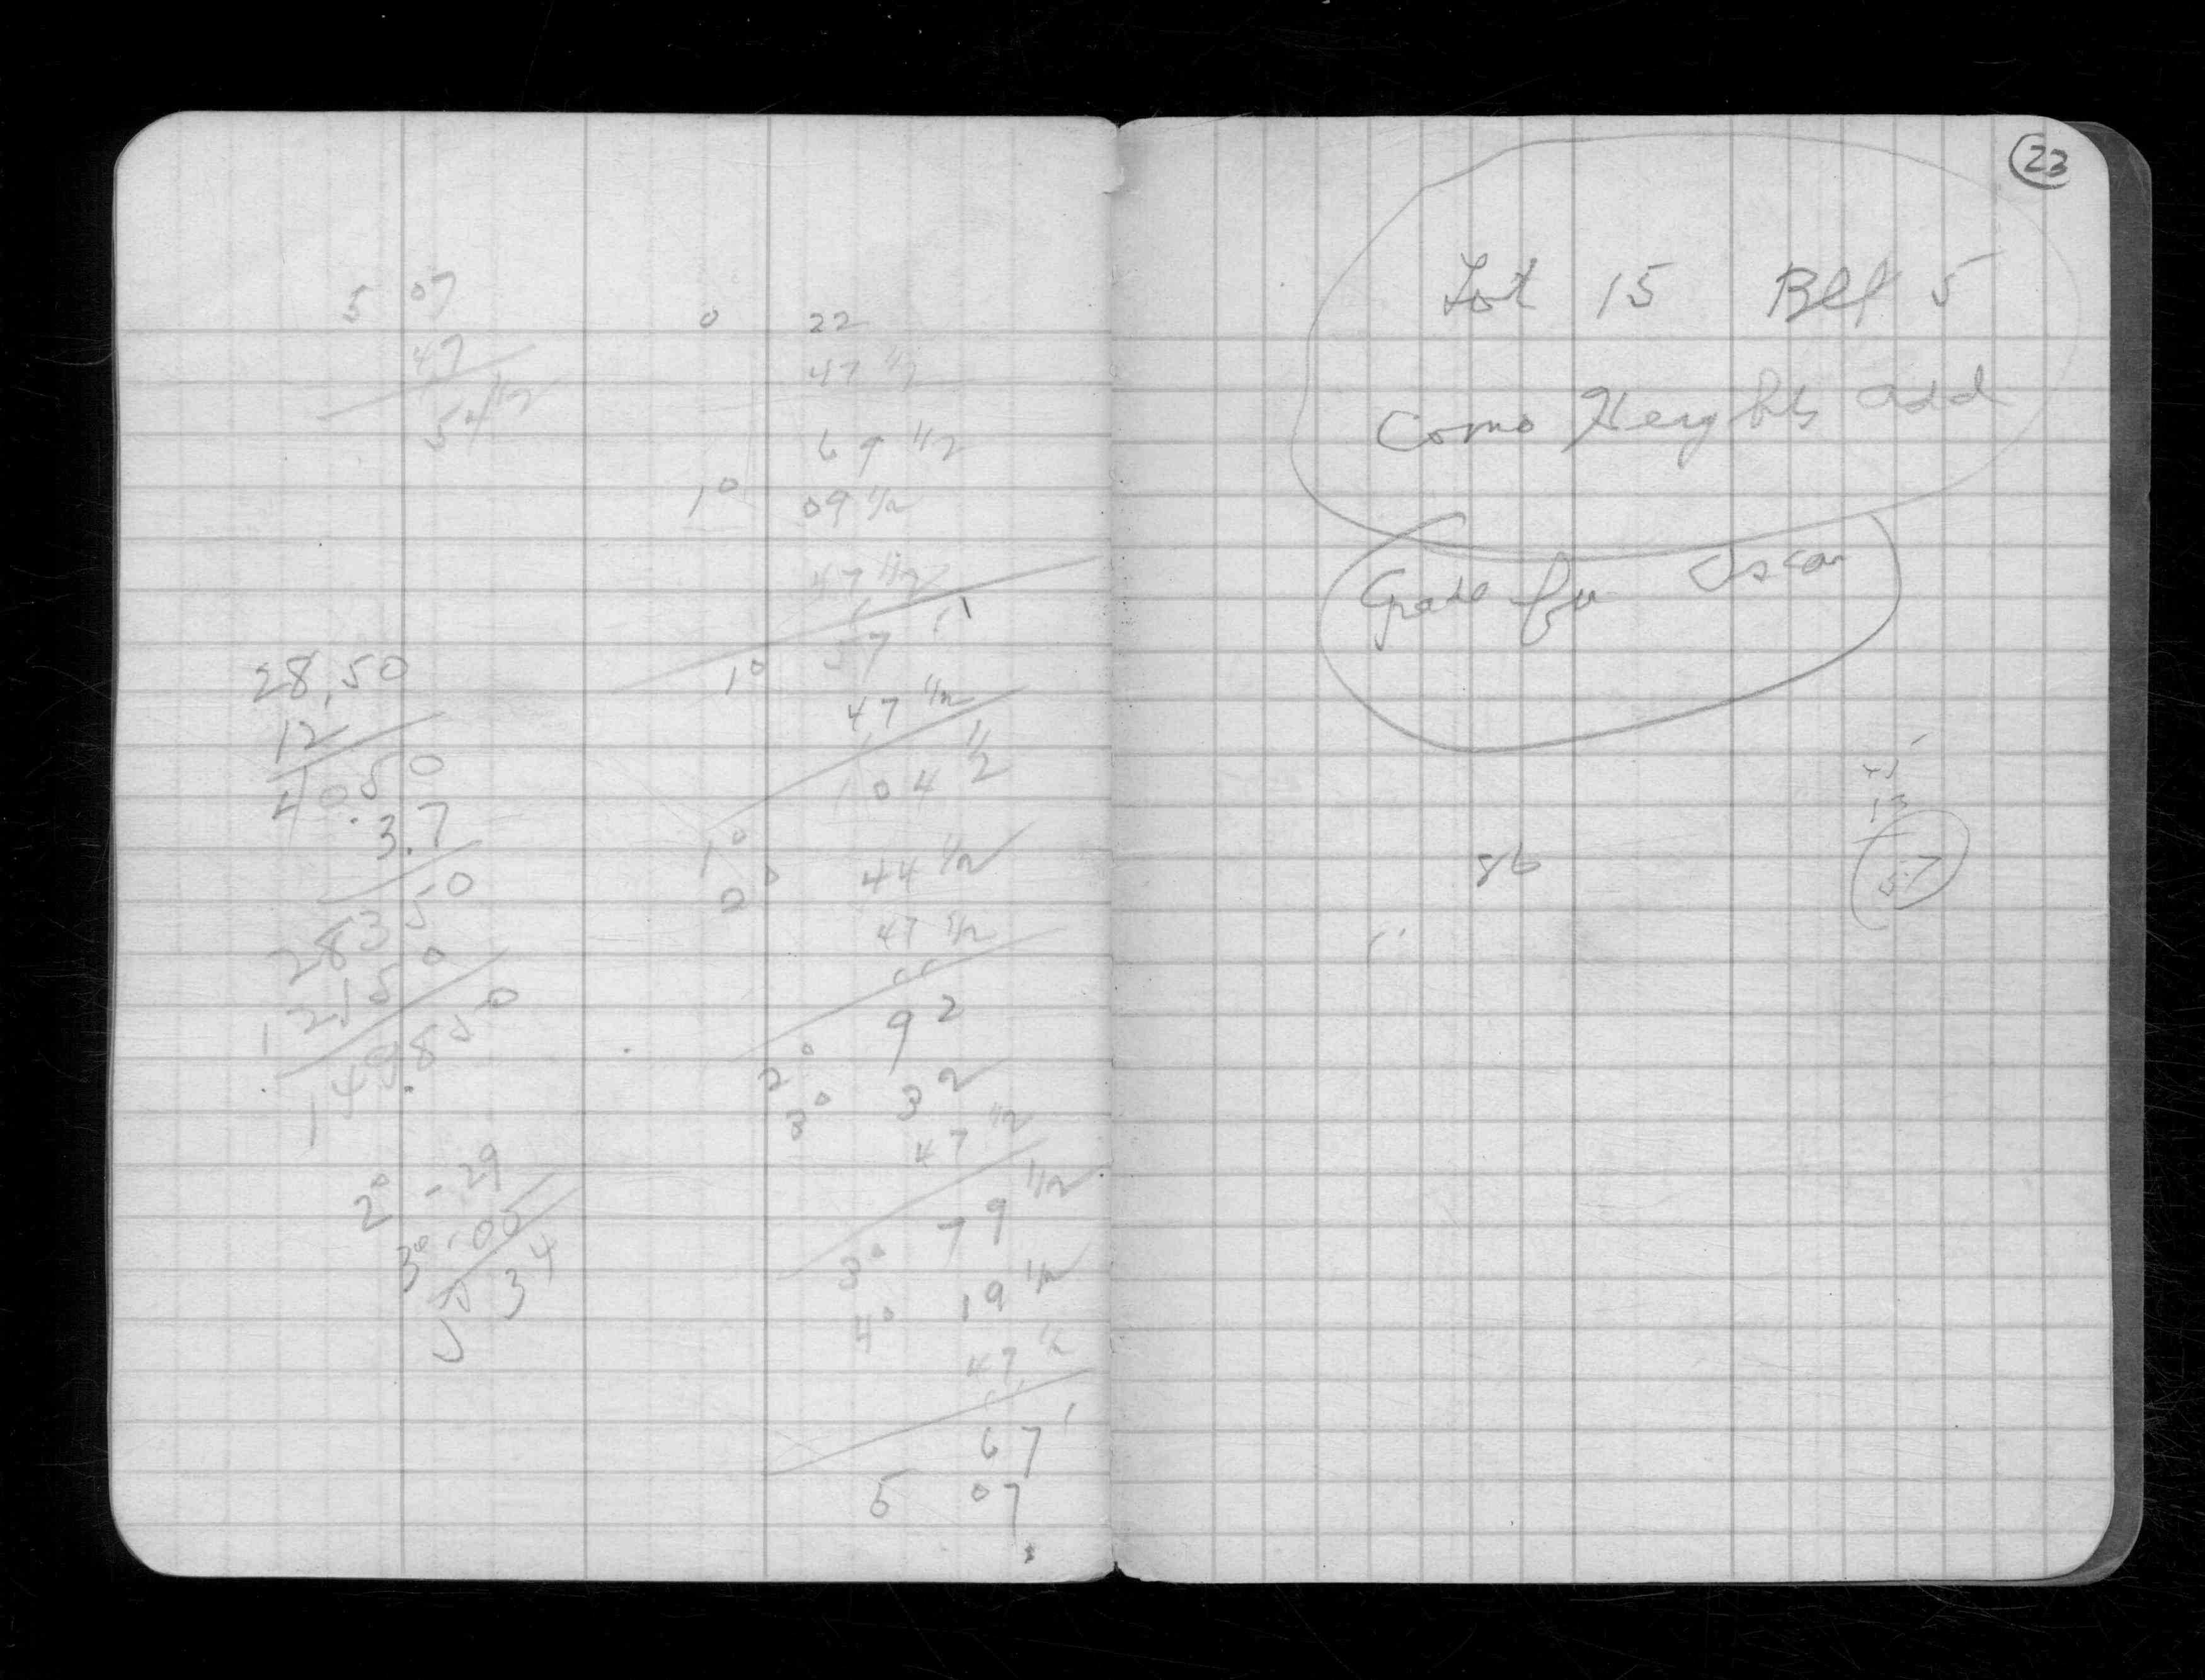 5 07
47
54 1/2
28.50
12
40.50
3.7
28350
12150
149.850
2° - 29
3° - 00
5 34
0 22
47 1/2
69 1/2
1° 09 1/2
47 1/2
1° 57
47 1/2
104 1/2
1°
2° 44 1/2
47 1/2
2° 92
3° 32
47 1/2
3° 79 1/2
4° 19 1/2
47 1/2
67
5 07
23
Lot 15 Blk 5
Como Heights add
Grade for Oscar
86
57